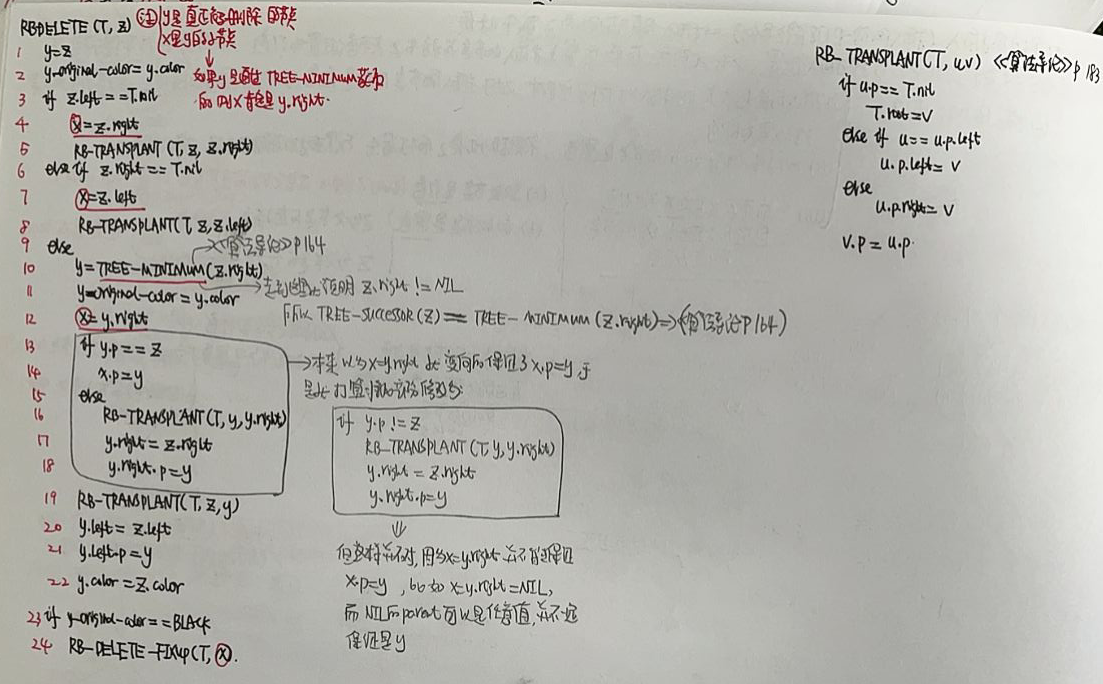 RBDELETE (T, z) 注 y是真正要删除的节点
x是y的子节点
1 y=z
2 y-original-color = y.color 如果y是通过 TREE-MINIMUM获取
的 则x肯定是 y.right.
3 if z.left == T.nil
4 x=z.right
5 RB-TRANSPLANT (T, z, z.right)
6 else if z.right == T.nil
7 x=z.left
8 RB-TRANSPLANT(T, z, z.left)
9 else 《算法导论》P164
10 y=TREE-MINIMUM(z.right)
11 y-original-color = y.color 走到这里说明 z.right != NIL
12 x=y.right 所以 TREE-SUCCESSOR(Z) == TREE-MINIMUM(z.right)=>《算法导论P164》
13 if y.p == z
14 x.p=y
15 else
16 RB-TRANSPLANT(T, y, y.right)
17 y.right = z.right
18 y.right.p=y
19 RB-TRANSPLANT(T, z, y)
20 y.left = z.left
21 y.left.p=y
22 y.color = z.color
23 if y-original-color == BLACK
24 RB-DELETE-FIXUP(T, x).
本来以为x=y.right 保证了x.p=y,于
是打算
if y.p != z
RB_TRANSPLANT (T, y, y.right)
y.right = z.right
y.right.p=y
但这样并不对, 因为x=y.right 并不能保证
x.p=y , 比如 x=y.right=NIL,
而 NIL的parent可以是任意值, 并不一定
保证是y
RB_TRANSPLANT(T, u,v) 《算法导论》P183
if u.p== T.nil
T.root=v
else if u== u.p.left
u.p.left= v
else
u.p.right= v
v.p = u.p.